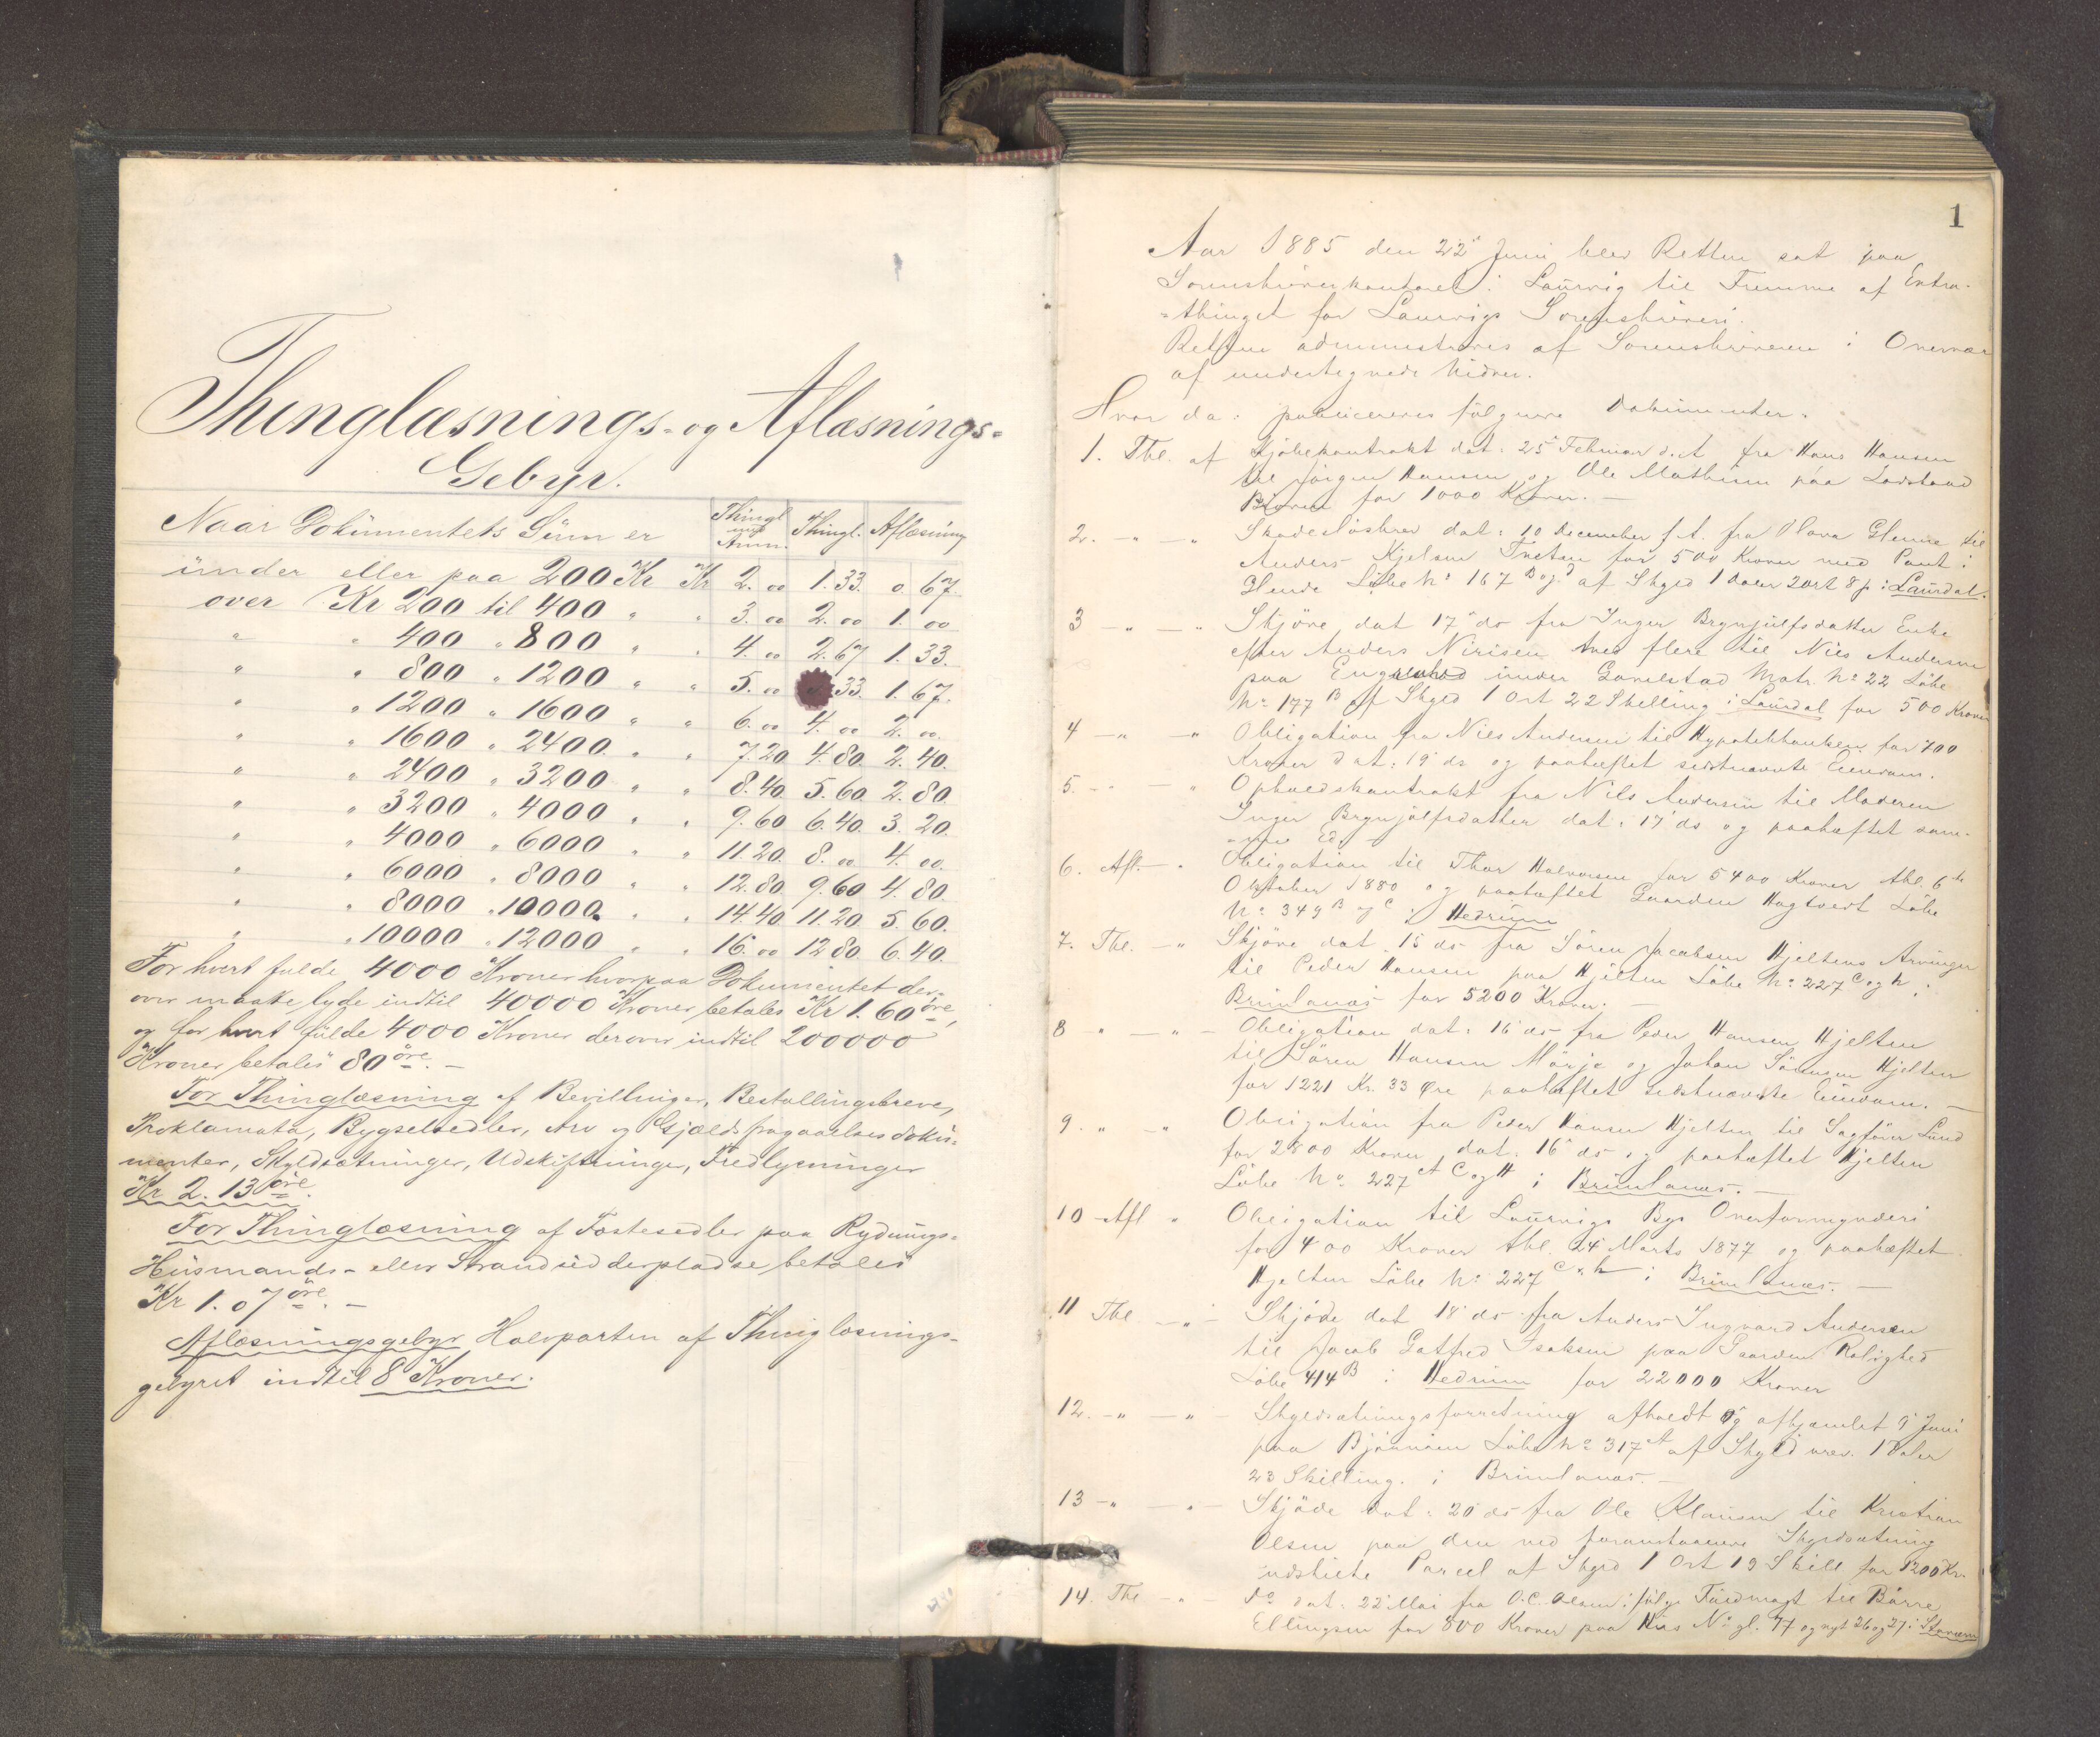 Thinglæsnings- og Aflæsnings-
Gebyr.
Naar Dokümentets Süm er Thingl. med Anm. Thingl. Aflæsning
ünder eller paa 200 Kr Kr 2. 00 1. 33. 0. 67.
over Kr 200 til 400 " " 3. 00 2. 00 1. 00
" " 400 " 800 " " 4. 00 2. 67 1. 33.
" " 800 " 1200 " " 5. 00 33. 1. 67.
" " 1200 " 1600 " " 6. 00 4. 00 2. 00.
" " 1600 " 2400 " " 7. 20 4. 80. 2. 40.
" " 2400 " 3200 " " 8. 40. 5. 60. 2. 80.
" " 3200 " 4000 " " 9. 60 6. 40. 3. 20.
" " 4000 " 6000 " " 11. 20. 8. 00 4. 00.
" " 6000 " 8000 " " 12. 80. 9. 60 4. 80.
" " 8000 " 10000 " " 14. 40. 11. 20. 5. 60.
" " 10000 " 12000 " " 16. 00 12 80. 6. 40.
For hvert fulde 4000 Kroner hvorpaa Dokumentet der-
over maatte lyde indtil 40000 Kroner betales Kr 1. 60 øre,
og for hvert fülde 4000 Kroner derover indtil 200000
Kroner betales 80 øre. –
For Thinglæsning af Bevillinger, Bestallingsbreve,
Proklamata, Bygselsedler, Arv og Gjælds fragaaelses dokü-
menter, Skyldsætninger, Udskiftninger, Fredlysninger
Kr 2. 13 øre.
For Thinglæsning af Fæstesedler paa Rydnings-
Hüsmands- eller Strandsidderpladse betales
Kr 1. 07 øre. –
Aflæsningsgebyr Halvparten af Thinglæsnings-
gebyret indtil 8 Kroner.
1
Aar 1885 den 22 Juni blev Retten sat paa
Sorenskriverkontoret i Laurvig til Fremme af Extra-
-thinget for Laurvigs Sorenskriveri.
Retten administreres af Sorenskriveren i Overvær
af undertegnede Vidner.
Hvor da publiceres følgende Dokumenter.
1. Thl. af Kjøbekontrakt dat: 25 Februar d. A. fra Hans Hansen
til Jørgen Hansen og Ole Mathisen paa
for 1000 Kroner. –
2. – " – " Skadesløsbrev dat: 10 December f. A. fra Olava Glenne til
Anders Kjelsen Tveten for 500 Kroner med Pant i
Løbe No 167 B og af Skyld 1 Daler 2 ort 8 s i Laurdal.
3 – " – " Skjøde dat 17 ds fra Inger Brynjülfsdatter Enke
efter Anders Nirisen med flere til Niels Andersen
paa under Gavelstad Matr. No 22 Løbe
No 177 B af Skyld 1 Ort 22 Skilling i Laurdal for 500 Kroner
4 – " – " Obligation fra Niels Andersen til Hypothekbanken for 700
Kroner dat: 19 ds og paahæftet sidstnævnte Eiendom.
5. – " – " Opholdskontrakt fra Nils Andersen til Moderen
Inger Brynjolfsdatter dat: 17 ds og paahæftet sam-
-me Ed.
6. Afl. – " Obligation til Thor Halvorsen for 5400 Kroner thl. 6te
Oktober 1880 og paahæftet Gaarden Hagtvedt Løbe
No 349 B og C i Hedrum
7. Thl. – " Skjøde dat. 15 ds fra Søren Jacobsen Hjeltens Arvinger
til Peder Hansen paa Hjelten Løbe No 227 C og h i
Brunlanæs for 5200 Kroner. –
8 – " – " – Obligation dat: 16 ds fra Peder Hansen Hjelten
til Søren Hansen Mørje og Johan Sørensen Hjelten
for 1221 Kr. 33 Øre paahæftet sidstnævnte Eiendom. –
9. – " – " Obligation fra Peder Hansen Hjelten til Sagfører Lund
for 2800 Kroner dat: 16 ds og paahæftet Hjelten
Løbe No 227 C og H i Brunlanæs. –
10 Afl " Obligation til Laurvigs Bys Overformynderi
for 400 Kroner thl. 24 Marts 1877 og paahæftet
Hjelten Løbe No 227 C og h i Brunlanæs. –
11 Thl – " – Skjøde dat 18 ds fra Anders Ingvard Andersen
til Jacob Gotfred Isaksen paa Gaarden Rolighed
Løbe 414 B i Hedrum for 22000 Kroner
12. – " – " – Skyldsætningsforretning afholdt og afhjemlet 9 Juni
paa Løbe No 317 af Skyld 1 Daler
23 Skilling. i Brunlanæs. –
13 – " – " – Skjøde dat: 20 ds fra Ole Klausen til Kristian
Olsen paa den ved foranstaaende Skyldsætning
udskilte Parcel af Skyld 1 Ort 19 Skill for 1200 Kr.
14. Thl – " – do dat: 22 Mai fra O. C. Olsen i følge Fuldmagt til Børre
Ellingsen for 800 Kroner paa Hüs No gl. 77 og nyt 26 og 27 i Stavern